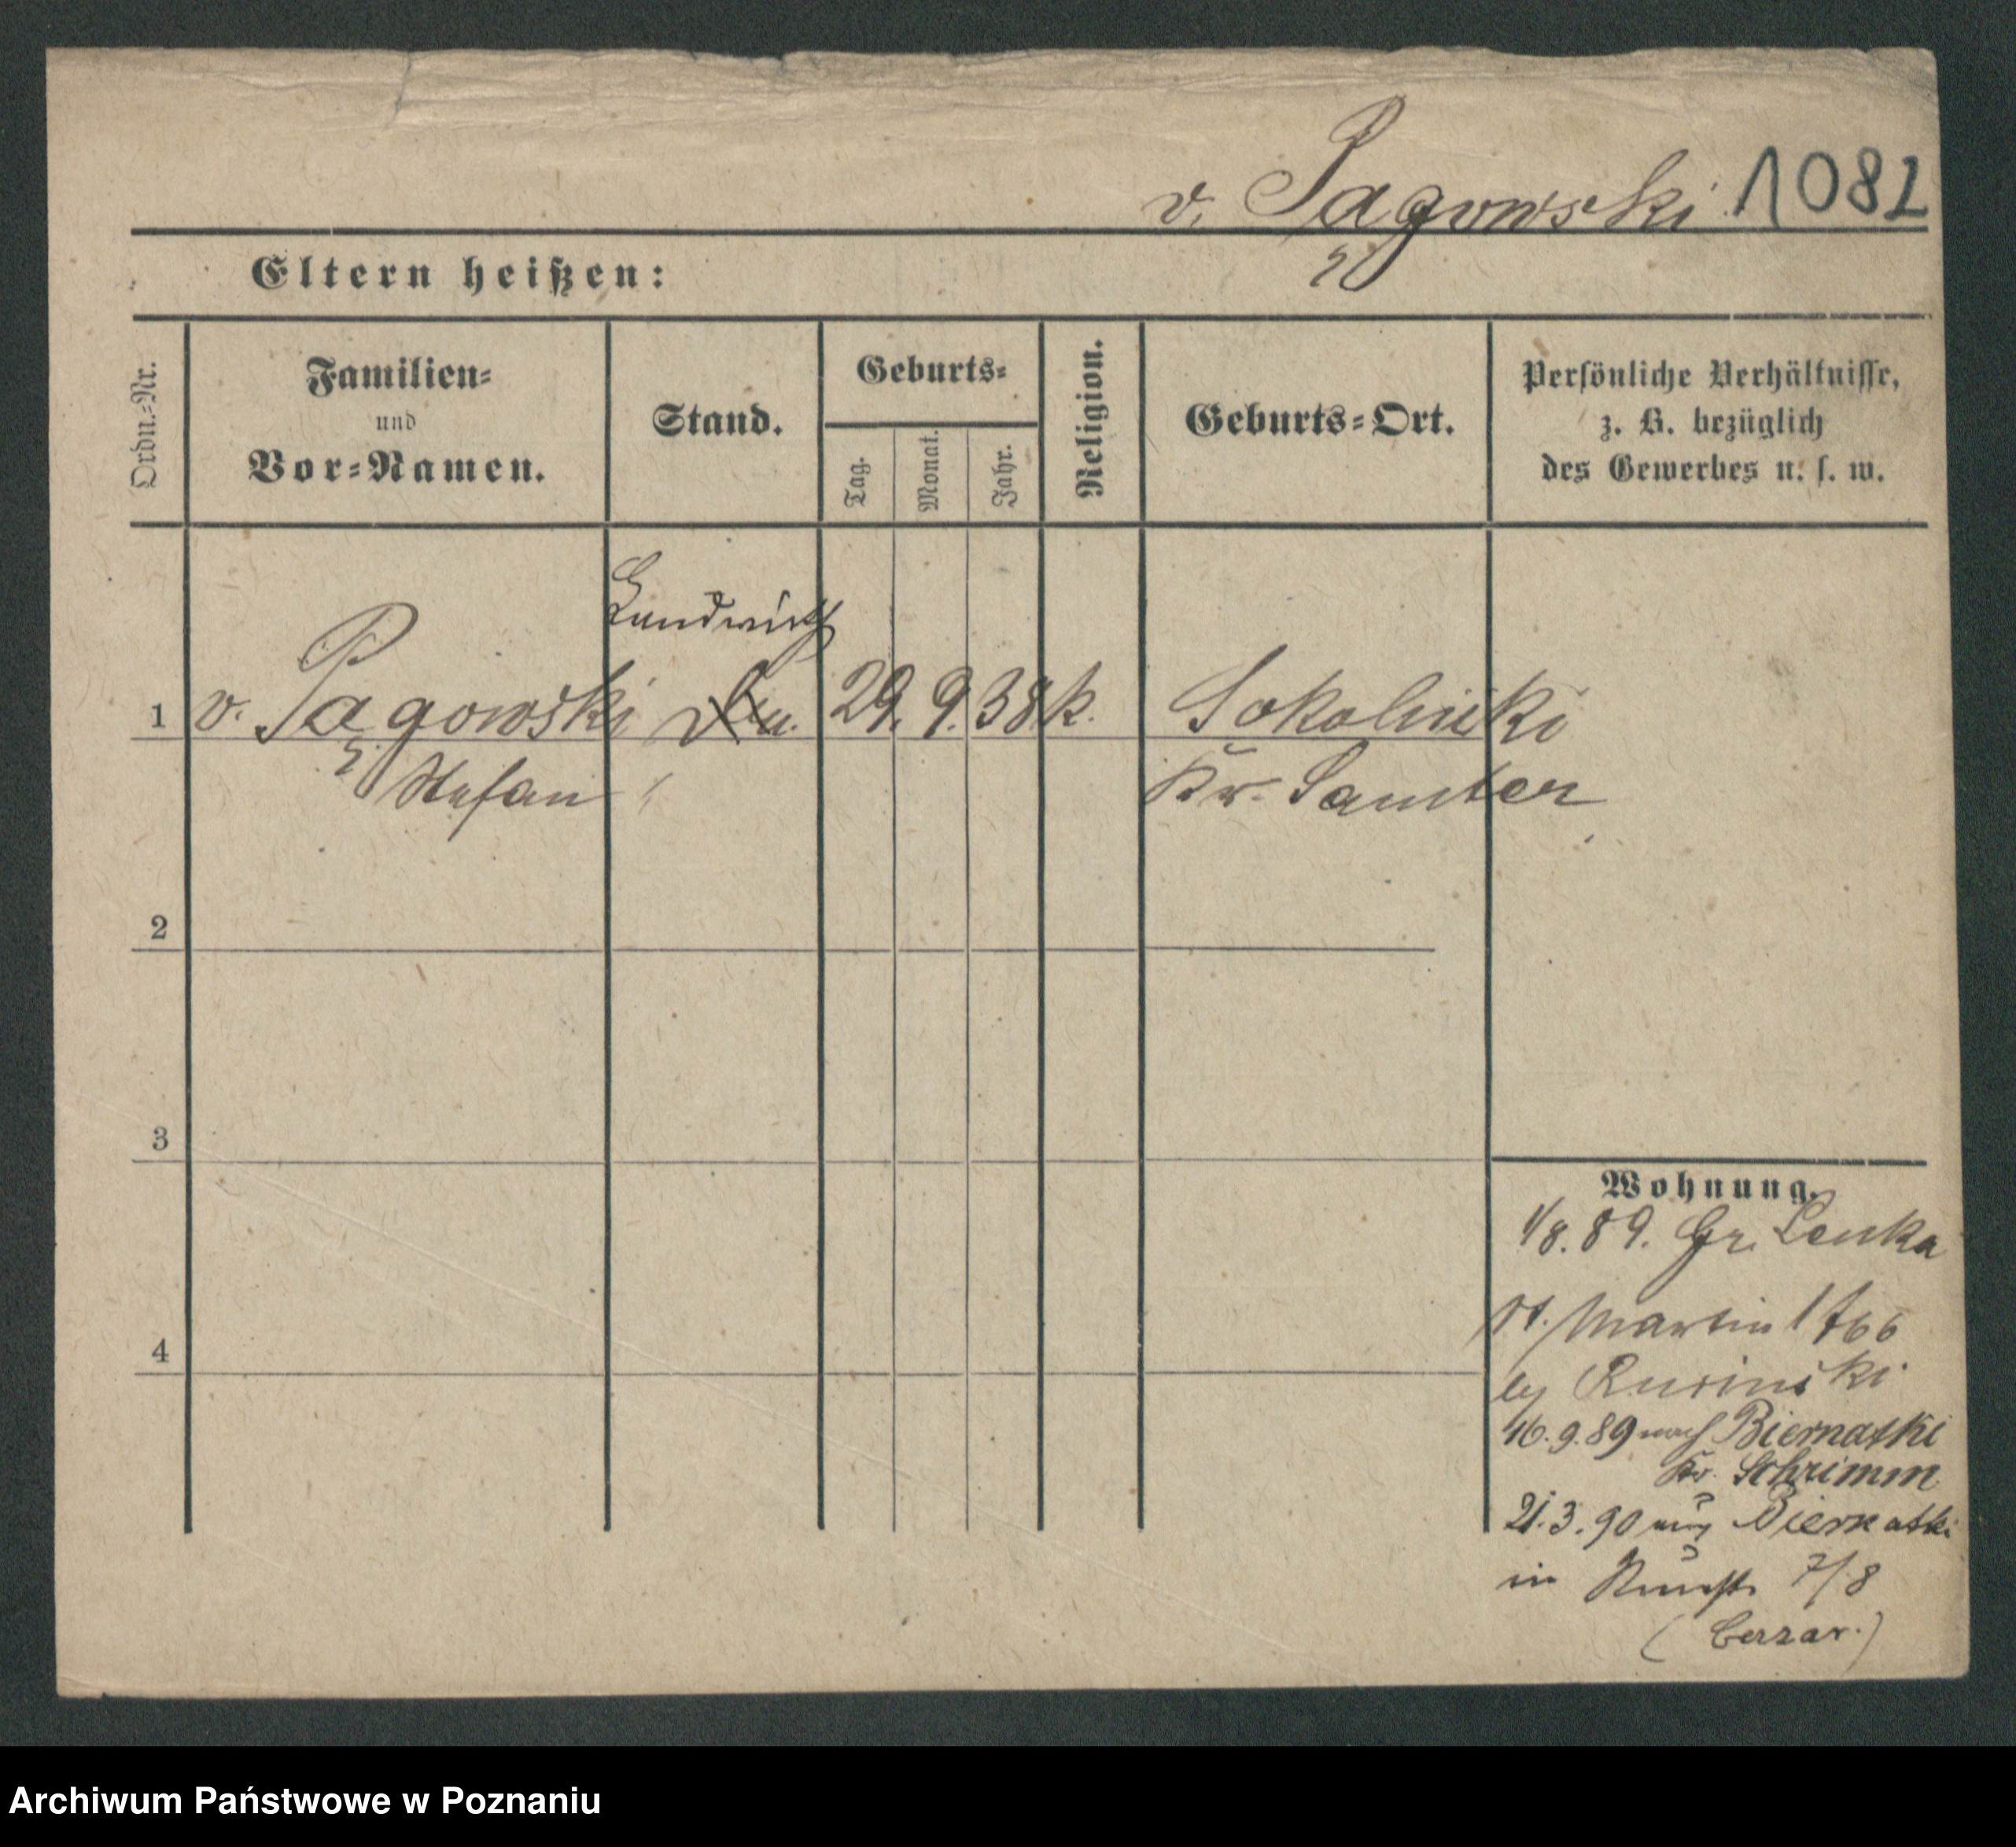 v. Pągowski 1082
Eltern heißen:
Ordn.-Nr.
Familien-
und
Vor-Namen.
Stand.
Geburts-
Tag.
Monat.
Jahr.
Religion.
Geburts-Ort.
Persönliche Verhältnisse,
z. B. bezüglich
des Gewerbes u. s. w.
Landwirth
1 v. Pągowski 29. 9. 38 k. Sokolniki
Stefan Kr. Samter
2
3
4
Wohnung.
1/8. 89. Gr. Lenka
St. Martin
by Rusinski
16. 9. 89 nach Biernatki
Kr. Schrimm
21. 3. 90 aus Biernatki
in 7/8
Archiwum Państwowe w Poznaniu